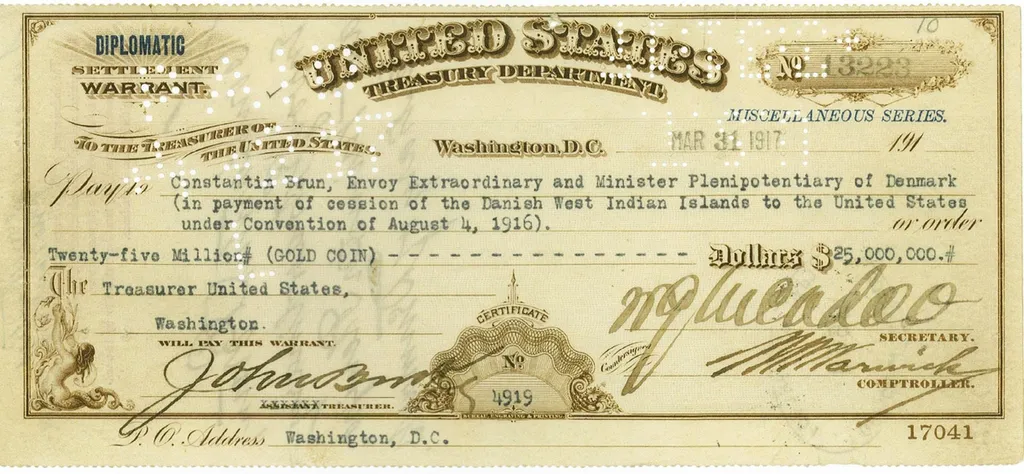 10
DIPLOMATIC
SETTLEMENT
WARRANT.
UNITED STATES
TREASURY DEPARTMENT,
No 13223
MISCELLANEOUS SERIES.
TO THE TREASURER OF
THE UNITED STATES,
Washington, D.C. MAR 31 1917 191
Pay to Constantin Brun, Envoy Extraordinary and Minister Plenipotentiary of Denmark
(in payment of cession of the Danish West Indian Islands to the United States
under Convention of August 4, 1916). or order
Twenty-five Million# (GOLD COIN) - - - - - - - - - - - - - - - - - Dollars $25,000,000.#
The Treasurer United States,
Washington.
WILL PAY THIS WARRANT.
CERTIFICATE
No
4919
W G McAdoo
SECRETARY.
Countersigned
W W Warwick
COMPTROLLER.
John Burke
TREASURER.
BUREAU, ENGRAVING & PRINTING.
P. O. Address Washington, D.C.
17041